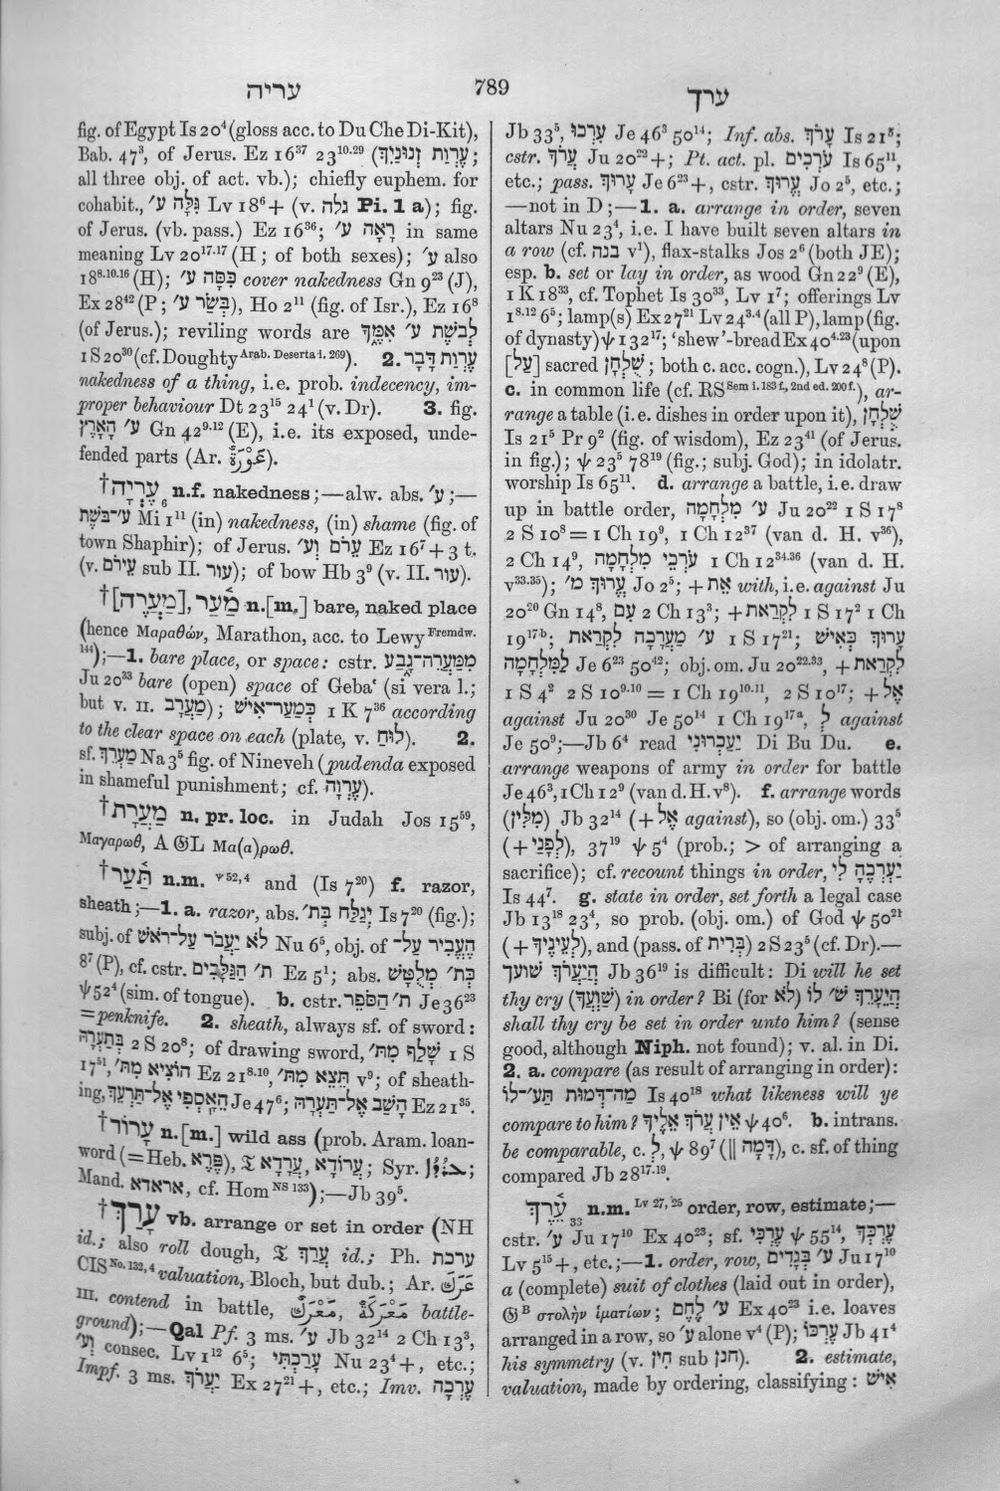 עריה
789
ערך
fig. of Egypt Is 20⁴ (gloss acc. to Du Che Di-Kit),
Bab. 47³, of Jerus. Ez 16³⁷ 23¹⁰·²⁹ (עֶרְוַת זְנוּנַיִךְ;
all three obj. of act. vb.); chiefly euphem. for
cohabit., גִּלָּה ע׳ Lv 18⁶+ (v. גלה Pi. 1 a); fig.
of Jerus. (vb. pass.) Ez 16³⁶; רָאָה ע׳ in same
meaning Lv 20¹⁷·¹⁷ (H; of both sexes); ע׳ also
18⁸·¹⁰·¹⁶ (H); כִּסָּה ע׳ cover nakedness Gn 9²³ (J),
Ex 28⁴² (P; בְּשַׂר ע׳), Ho 2¹¹ (fig. of Isr.), Ez 16⁸
(of Jerus.); reviling words are לְבֹשֶׁת ע׳ אִמֶּךָ
1 S 20³⁰ (cf. Doughty Arab. Deserta i. 269). 2. עֶרְוַת דָּבָר
nakedness of a thing, i.e. prob. indecency, im-
proper behaviour Dt 23¹⁵ 24¹ (v. Dr). 3. fig.
ע׳ הָאָרֶץ Gn 42⁹·¹² (E), i.e. its exposed, unde-
fended parts (Ar. عَوْرَة).
†עֶרְיָה₆ n.f. nakedness;—alw. abs. ע׳;—
עֶרְיָה־בֹשֶׁת Mi 1¹¹ (in) nakedness, (in) shame (fig. of
town Shaphir); of Jerus. עֵרֹם וְע׳ Ez 16⁷ + 3 t.
(v. עֵירֹם sub II. עור); of bow Hb 3⁹ (v. II. עור).
†[מַעֲרֶה], מַ֫עַר n.[m.] bare, naked place
(hence Μαραθών, Marathon, acc. to Lewy Fremdw.
144);—1. bare place, or space: cstr. מִמַּעֲרֵה־גָבַע
Ju 20³³ bare (open) space of Gebaʿ (si vera l.;
but v. II. מַעֲרָב); כְּמַעַר־אִישׁ 1 K 7³⁶ according
to the clear space on each (plate, v. לוּחַ). 2.
sf. מַעְרֵךְ Na 3⁵ fig. of Nineveh (pudenda exposed
in shameful punishment; cf. עֶרְוָה).
†מַעֲרָת n. pr. loc. in Judah Jos 15⁵⁹,
Μαγαρωθ, A 𝔊L Μα(α)ρωθ.
†תַּ֫עַר n.m. ψ 52,4 and (Is 7²⁰) f. razor,
sheath;—1. a. razor, abs. יְגַלַּח בְּת׳ Is 7²⁰ (fig.);
subj. of לֹא יַעֲבֹר עַל־רֹאשׁ Nu 6⁵, obj. of הֶעֱבִיר עַל־
8⁷ (P), cf. cstr. ת׳ הַגַּלָּבִים Ez 5¹; abs. כְּת׳ מְלֻטָּשׁ
ψ 52⁴ (sim. of tongue). b. cstr. ת׳ הַסֹּפֵר Je 36²³
= penknife. 2. sheath, always sf. of sword:
בְּתַעְרָהּ 2 S 20⁸; of drawing sword, שָׁלַף מִתּ׳ 1 S
17⁵¹, הוֹצִיא מִתּ׳ Ez 21⁸·¹⁰, תֵּצֵא מִתּ׳ v⁹; of sheath-
ing, הֵאָסְפִי אֶל־תַּעְרֵךְ Je 47⁶; הָשַׁב אֶל־תַּעְרָהּ Ez 21³⁵.
†עָרוֹד n.[m.] wild ass (prob. Aram. loan-
word (= Heb. פֶּרֶא), 𝔗 עֲרָדָא, עֲרוֹדָא; Syr. ܥܪܳܕܳܐ;
Mand. אראדא, cf. Hom NS 133);—Jb 39⁵.
†עָרַךְ vb. arrange or set in order (NH
id.; also roll dough, 𝔗 עֲרַךְ id.; Ph. ערכת
CIS No. 132, 4 valuation, Bloch, but dub.; Ar. عَرَكَ
III. contend in battle, مَعْرَكٌ, مَعْرَكَةٌ battle-
ground);—Qal Pf. 3 ms. ע׳ Jb 32¹⁴ 2 Ch 13³,
וְע׳ consec. Lv 1¹² 6⁵; עָרַכְתִּי Nu 23⁴+, etc.;
Impf. 3 ms. יַעֲרֹךְ Ex 27²¹+, etc.; Imv. עֶרְכָה
Jb 33⁵, עִרְכוּ Je 46³ 50¹⁴; Inf. abs. עָרֹךְ Is 21⁵;
cstr. עֲרֹךְ Ju 20²²+; Pt. act. pl. עֹרְכִים Is 65¹¹,
etc.; pass. עָרוּךְ Je 6²³+, cstr. עֱרוּךְ Jo 2⁵, etc.;
—not in D;—1. a. arrange in order, seven
altars Nu 23⁴, i.e. I have built seven altars in
a row (cf. בנה v¹), flax-stalks Jos 2⁶ (both JE);
esp. b. set or lay in order, as wood Gn 22⁹ (E),
1 K 18³³, cf. Tophet Is 30³³, Lv 1⁷; offerings Lv
1⁸·¹² 6⁵; lamp(s) Ex 27²¹ Lv 24³·⁴ (all P), lamp (fig.
of dynasty) ψ 132¹⁷; ‘shew’-bread Ex 40⁴·²³ (upon
[עַל] sacred שֻׁלְחָן; both c. acc. cogn.), Lv 24⁸ (P).
c. in common life (cf. RS Sem i. 183 f., 2nd ed. 200 f.), ar-
range a table (i. e. dishes in order upon it), שֻׁלְחָן
Is 21⁵ Pr 9² (fig. of wisdom), Ez 23⁴¹ (of Jerus.
in fig.); ψ 23⁵ 78¹⁹ (fig.; subj. God); in idolatr.
worship Is 65¹¹. d. arrange a battle, i. e. draw
up in battle order, ע׳ מִלְחָמָה Ju 20²² 1 S 17⁸
2 S 10⁸ = 1 Ch 19⁹, 1 Ch 12³⁷ (van d. H. v³⁶),
2 Ch 14⁹, עֹרְכֵי מִלְחָמָה 1 Ch 12³⁴·³⁶ (van d. H.
v³³·³⁵); עֱרוּךְ מ׳ Jo 2⁵; + אֶת with, i.e. against Ju
20²⁰ Gn 14⁸, עִם 2 Ch 13³; + לִקְרַאת 1 S 17² 1 Ch
19¹⁷ᵇ; ע׳ מַעֲרָכָה לִקְרַאת 1 S 17²¹; עָרוּךְ כְּאִישׁ
לַמִּלְחָמָה Je 6²³ 50⁴²; obj. om. Ju 20²²·³³, + לִקְרַאת
1 S 4² 2 S 10⁹·¹⁰ = 1 Ch 19¹⁰·¹¹, 2 S 10¹⁷; + אֶל
against Ju 20³⁰ Je 50¹⁴ 1 Ch 19¹⁷ᵃ, לְ against
Je 50⁹;—Jb 6⁴ read יַעַכְרוּנִי Di Bu Du. e.
arrange weapons of army in order for battle
Je 46³, 1 Ch 12⁹ (van d. H. v⁸). f. arrange words
(מִלִּין) Jb 32¹⁴ (+ אֶל against), so (obj. om.) 33⁵
(+ לְפָנַי), 37¹⁹ ψ 5⁴ (prob.; > of arranging a
sacrifice); cf. recount things in order, יַעְרְכֶהָ לִי
Is 44⁷. g. state in order, set forth a legal case
Jb 13¹⁸ 23⁴, so prob. (obj. om.) of God ψ 50²¹
(+ לְעֵינֶיךָ), and (pass. of בְּרִית) 2 S 23⁵ (cf. Dr).—
הֲיַעֲרֹךְ שׁוּעֲךָ Jb 36¹⁹ is difficult: Di will he set
thy cry (שַׁוְעֲךָ) in order? Bi (for לֹא) הֲיֵעָרֵךְ שׁ׳ לוֹ
shall thy cry be set in order unto him? (sense
good, although Niph. not found); v. al. in Di.
2. a. compare (as result of arranging in order):
מַה־דְּמוּת תַּע׳־לוֹ Is 40¹⁸ what likeness will ye
compare to him? אֵין עֲרֹךְ אֵלֶיךָ ψ 40⁶. b. intrans.
be comparable, c. לְ, ψ 89⁷ (‖ דָּמָה), c. sf. of thing
compared Jb 28¹⁷·¹⁹.
עֵ֫רֶךְ₃₃ n.m. Lv 27, 25 order, row, estimate;—
cstr. ע׳ Ju 17¹⁰ Ex 40²³; sf. עֶרְכִּי ψ 55¹⁴, עֶרְכְּךָ
Lv 5¹⁵+, etc.;—1. order, row, ע׳ בְּגָדִים Ju 17¹⁰
a (complete) suit of clothes (laid out in order),
𝔊ᴮ στολὴν ἱματίων; ע׳ לֶחֶם Ex 40²³ i.e. loaves
arranged in a row, so ע׳ alone v⁴ (P); עֶרְכּוֹ Jb 41⁴
his symmetry (v. חִין sub חנן). 2. estimate,
valuation, made by ordering, classifying: אִישׁ